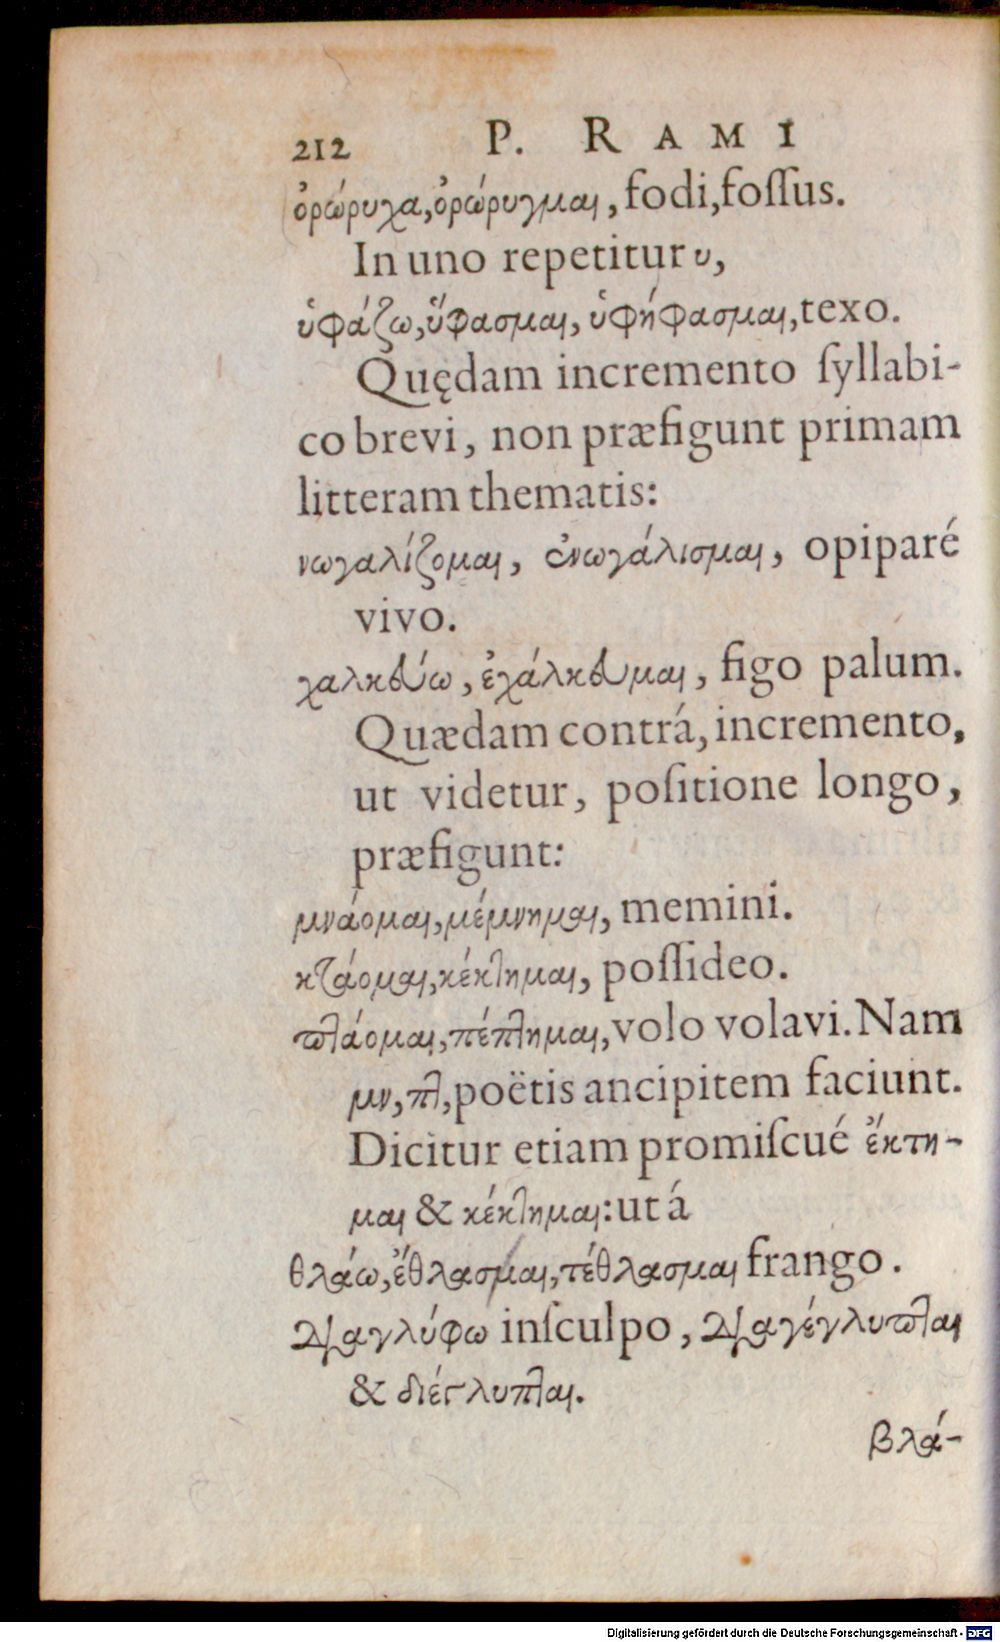 212 P. RAMI
ὀρώρυχα, ὀρώρυγμαι, fodi, foſſus.
In uno repetitur υ,
ὑφάζω, ὕφασμαι, ὑφήφασμαι, texo.
Quędam incremento ſyllabi-
co brevi, non præfigunt primam
litteram thematis:
νωγαλίζομαι, ἐνωγάλισμαι, opiparé
vivo.
χαλκεύω, ἐχάλκευμαι, figo palum.
Quædam contrá, incremento,
ut videtur, poſitione longo,
præfigunt:
μνάομαι, μέμνημαι, memini.
κτάομαι, κέκτημαι, poſſideo.
πτάομαι, πέπτημαι, volo volavi. Nam
μν, πτ, poëtis ancipitem faciunt.
Dicitur etiam promiſcué ἔκτη-
μαι & κέκτημαι: ut á
θλάω, ἔθλασμαι, τέθλασμαι frango.
διαγλύφω inſculpo, διαγέγλυπται
& διέγλυπται.
βλά-
Digitalisierung gefördert durch die Deutsche Forschungsgemeinschaft - DFG